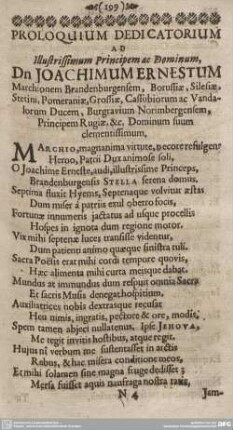 (199)
PROLOQUIUM DEDICATORIUM
AD
Illustrissimum Principem ac Dominum,
Dn JOACHIMUM ERNESTUM
Marchionem Brandenburgensem, Borussiæ, Silesiæ,
Stetini, Pomeraniæ, Cassubiorum ac Vanda-
lorum Ducem, Burgravium Norimbergensem,
Principem Rugiæ. &c. Dominum suum
clementissimum,
MARCHIO, magnanima virtute, Decore refulgens
Heroo, Patrii Dux animose soli,
O Joachime Erneste, audi, illustrissime Princeps,
Brandenburgensis STELLA serena domus,
Septima fluxit Hyems, Septenaque volvitur æstas
Dum miser à patriis exul oberro focis,
Fortunæ innumeris jactatus ad usque procellis
Hospes in ignota dum regione moror.
Vix mihi septenæ luces transisse videntur,
Dum patienti animo quæque sinistra tuli.
Sacra Poësis erat mihi cordi tempore quovis,
Hæc alimenta mihi curta meisque dabat.
Mundus at immundus dum respuit omnia Sacra
Et sacris Musis denegat hospitium,
Auxiliatrices nobis dextrasque recusat
Heu nimis, ingratis, pectore & ore, modis,
Spem tamen abjeci nullatenus. Ipse JEHOVA,
Me tegit invitis hostibus, atque regit.
Hujus nî verbum me sustentasset in arctis
Rabus, & hac misera conditione tortos,
Et mihi solamen sine magna
Mersa fuisset aquis naufraga nostra ratis,
N 4 Jam-